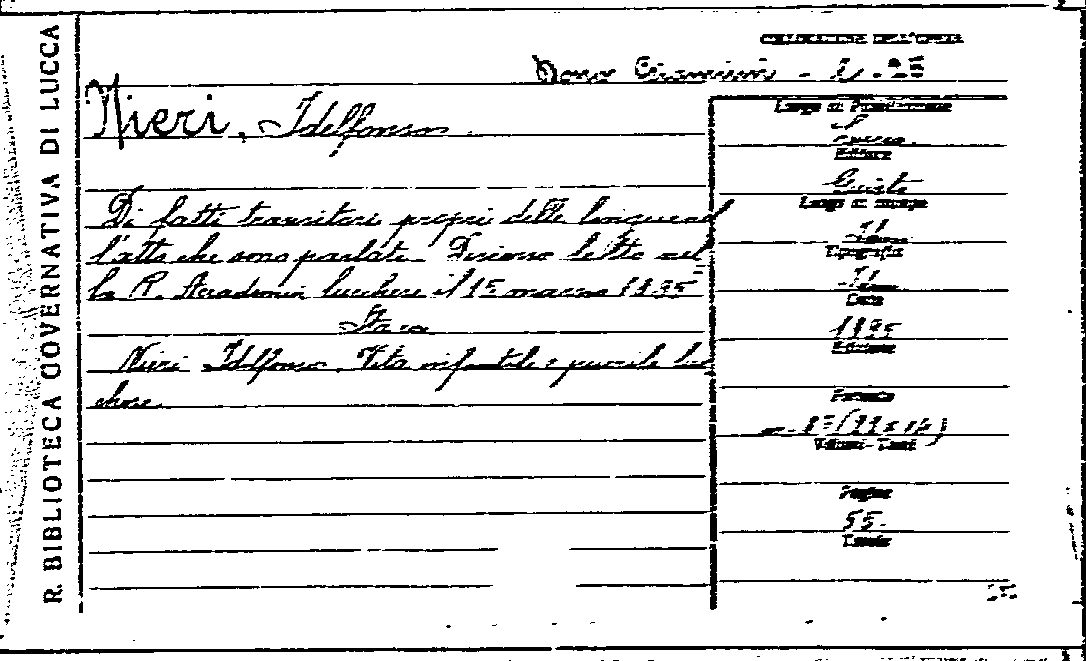 R. BIBLIOTECA GOVERNATIVA DI LUCCA
Nieri, Idelfonso
Di fatti transitori propri delle lingue nel
l'atto che sono parlate. Discorso letto nel
la R. Accademia lucchese il 15 marzo 1895
Nieri Idelfonso. Vita infantile e puerile luc
chese.
Luogo di Pubblicazione
Lucca.
Editore
Giusti
Luogo di stampa
Id.
Tipografia
Id.
Data
1895
Edizione
Formato
8° (22x14)
Volumi-Tomi
Pagine
55.
Tavole